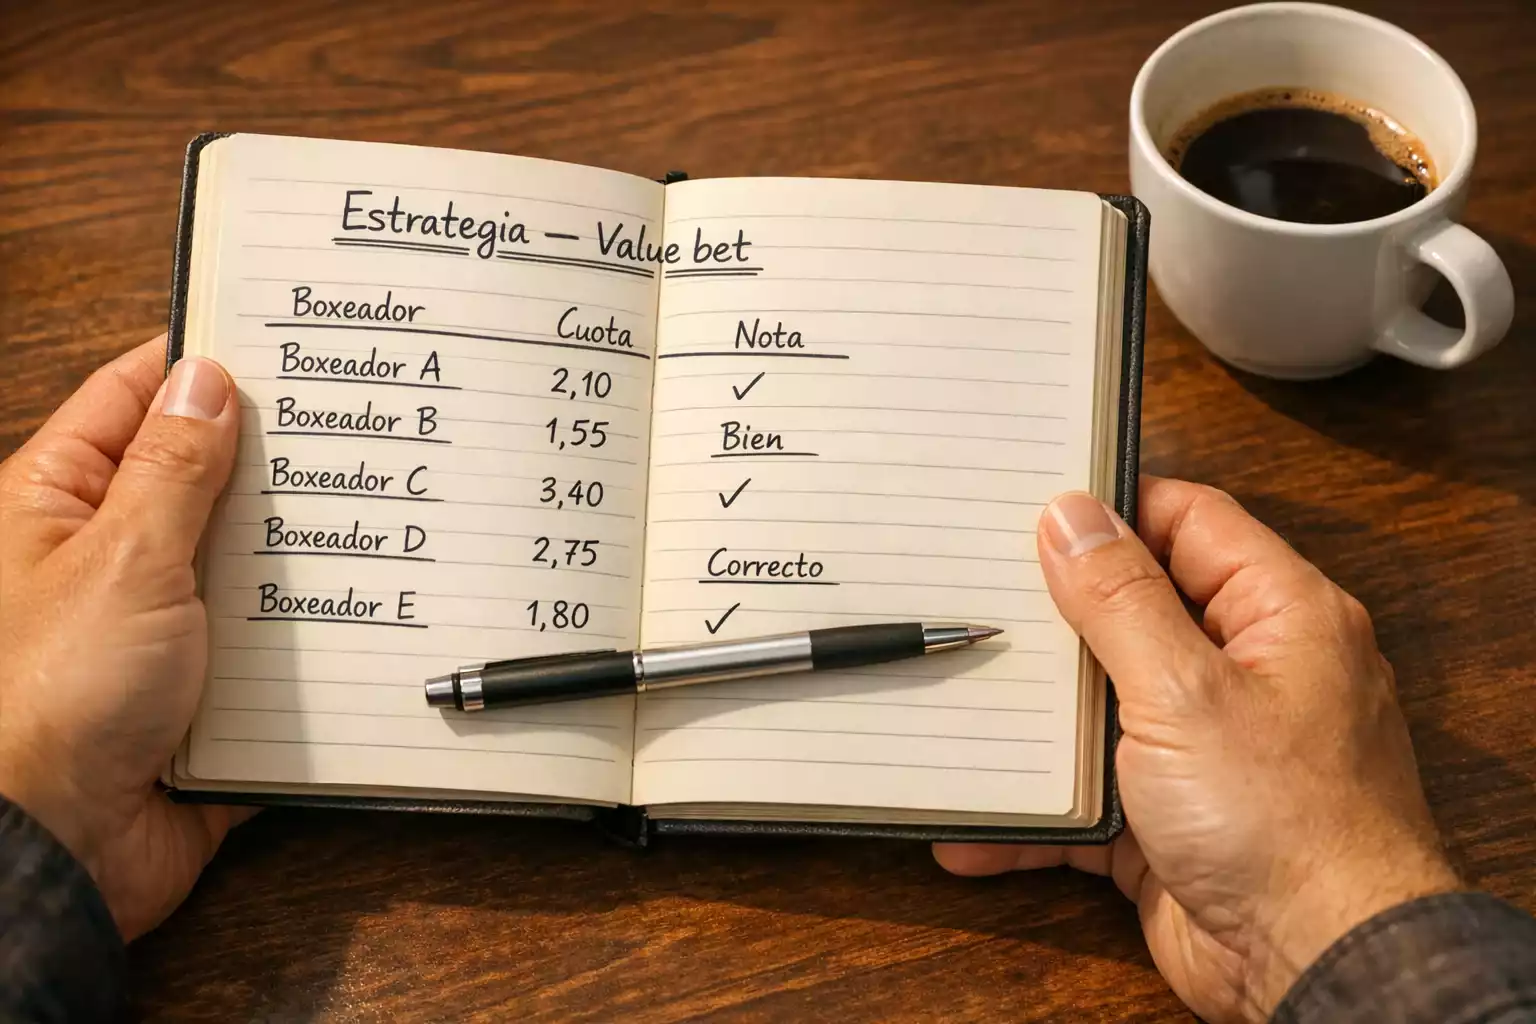 Estrategia — Value bet
Boxeador Cuota Nota
Boxeador A 2,10 ✓
Boxeador B 1,55 Bien
Boxeador C 3,40 ✓
Boxeador D 2,75 Correcto
Boxeador E 1,80 ✓